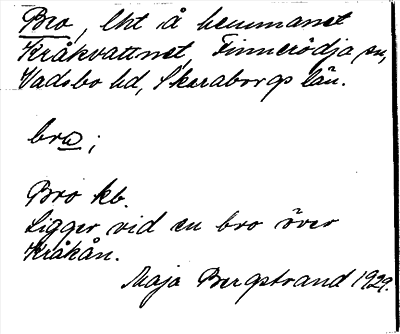 Bro, lht å hemmanet
Kråkvattnet, Finnerödja sn,
Vadsbo hd, Skaraborgs län.
brω;
Bro kb.
Ligger vid en bro över
Kråkån.
Maja Bergstrand 1929.